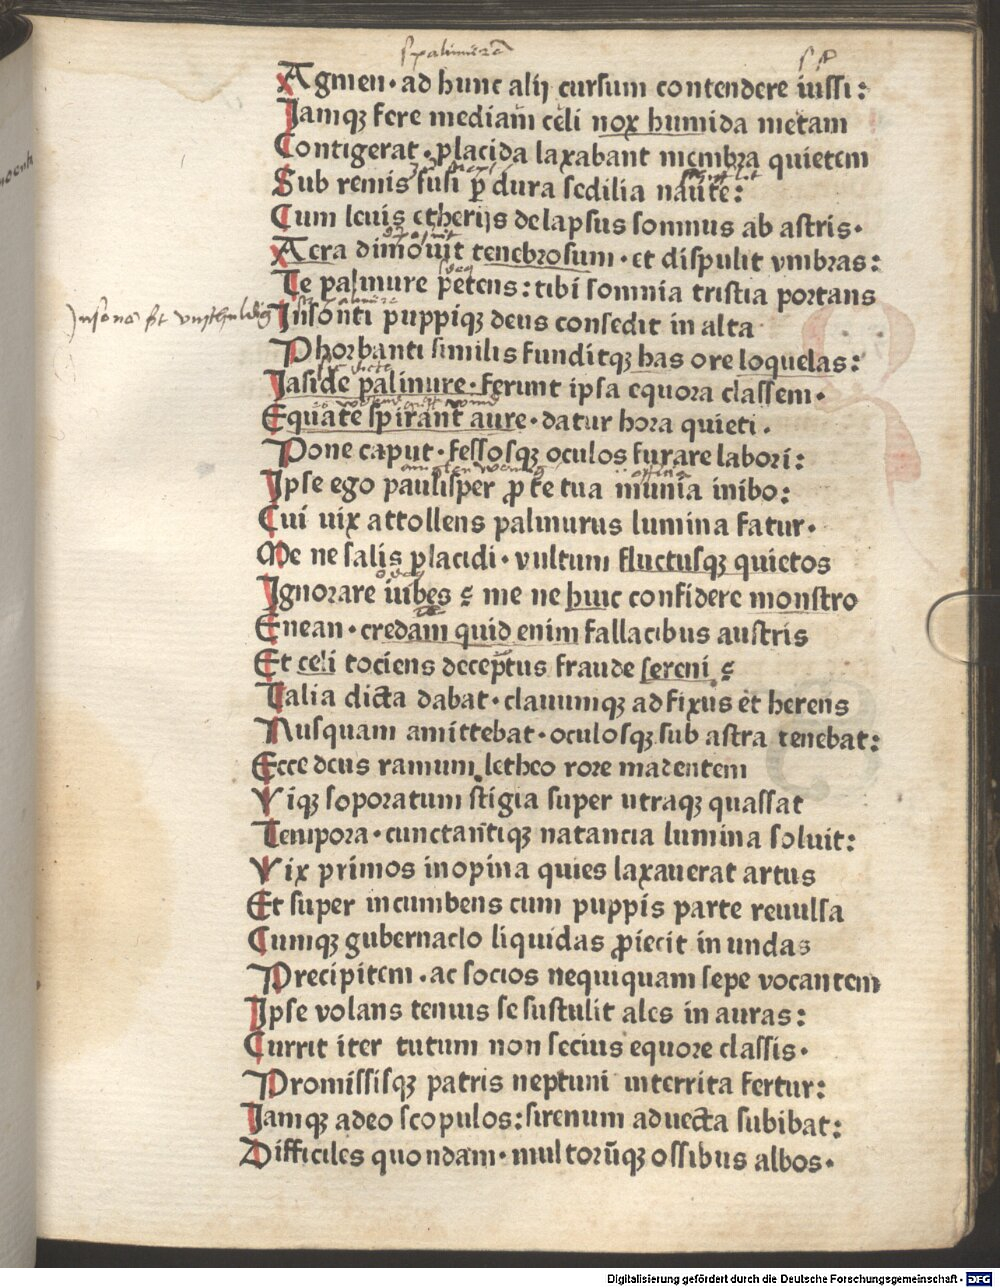 s palinurũ
s st
Agmen · ad hunc alij cursum contendere iussi:
Jamqꝫ fere mediam celi nox humida metam
Contigerat · placida laxabant membra quietem
Sub remis fusi ꝑ dura sedilia naute:
Cum leuis etherijs delapsus somnus ab astris ·
Aera dimouit tenebrosum · et dispulit vmbras:
Te palinure petens: tibi somnia tristia portans
Insons st vnschuldig
Insonti puppiqꝫ deus consedit in alta
Phorbanti similis funditqꝫ has ore loquelas:
Jaside palinure · ferunt ipsa equora classem ·
Equate spirant aure · datur hora quieti .
Pone caput · fessosqꝫ oculos furare labori:
Ipse ego paulisper ꝓ te tua munia inibo:
Cui uix attollens palinurus lumina fatur ·
Me ne salis placidi · vultum fluctusqꝫ quietos
Ignorare iubes ? me ne huic confidere monstro
Enean · credam quid enim fallacibus austris
Et celi tociens deceptus fraude sereni ?
Talia dicta dabat · clauumqꝫ adfixus et herens
Nusquam amittebat · oculosqꝫ sub astra tenebat:
Ecce deus ramum letheo rore madentem
Viqꝫ soporatum stigia super utraqꝫ quassat
Tempora · cunctantiqꝫ natancia lumina soluit:
Vix primos inopina quies laxauerat artus
Et super incumbens cum puppis parte reuulsa
Cumqꝫ gubernaclo liquidas ꝓiecit in undas
Precipitem · ac socios nequiquam sepe vocantem
Ipse volans tenuis se sustulit ales in auras:
Currit iter tutum non secius equore classis ·
Promissisqꝫ patris neptuni interrita fertur:
Jamqꝫ adeo scopulos: sirenum aduecta subibat:
Difficiles quondam · multorũqꝫ ossibus albos ·
Digitalisierung gefördert durch die Deutsche Forschungsgemeinschaft - DFG